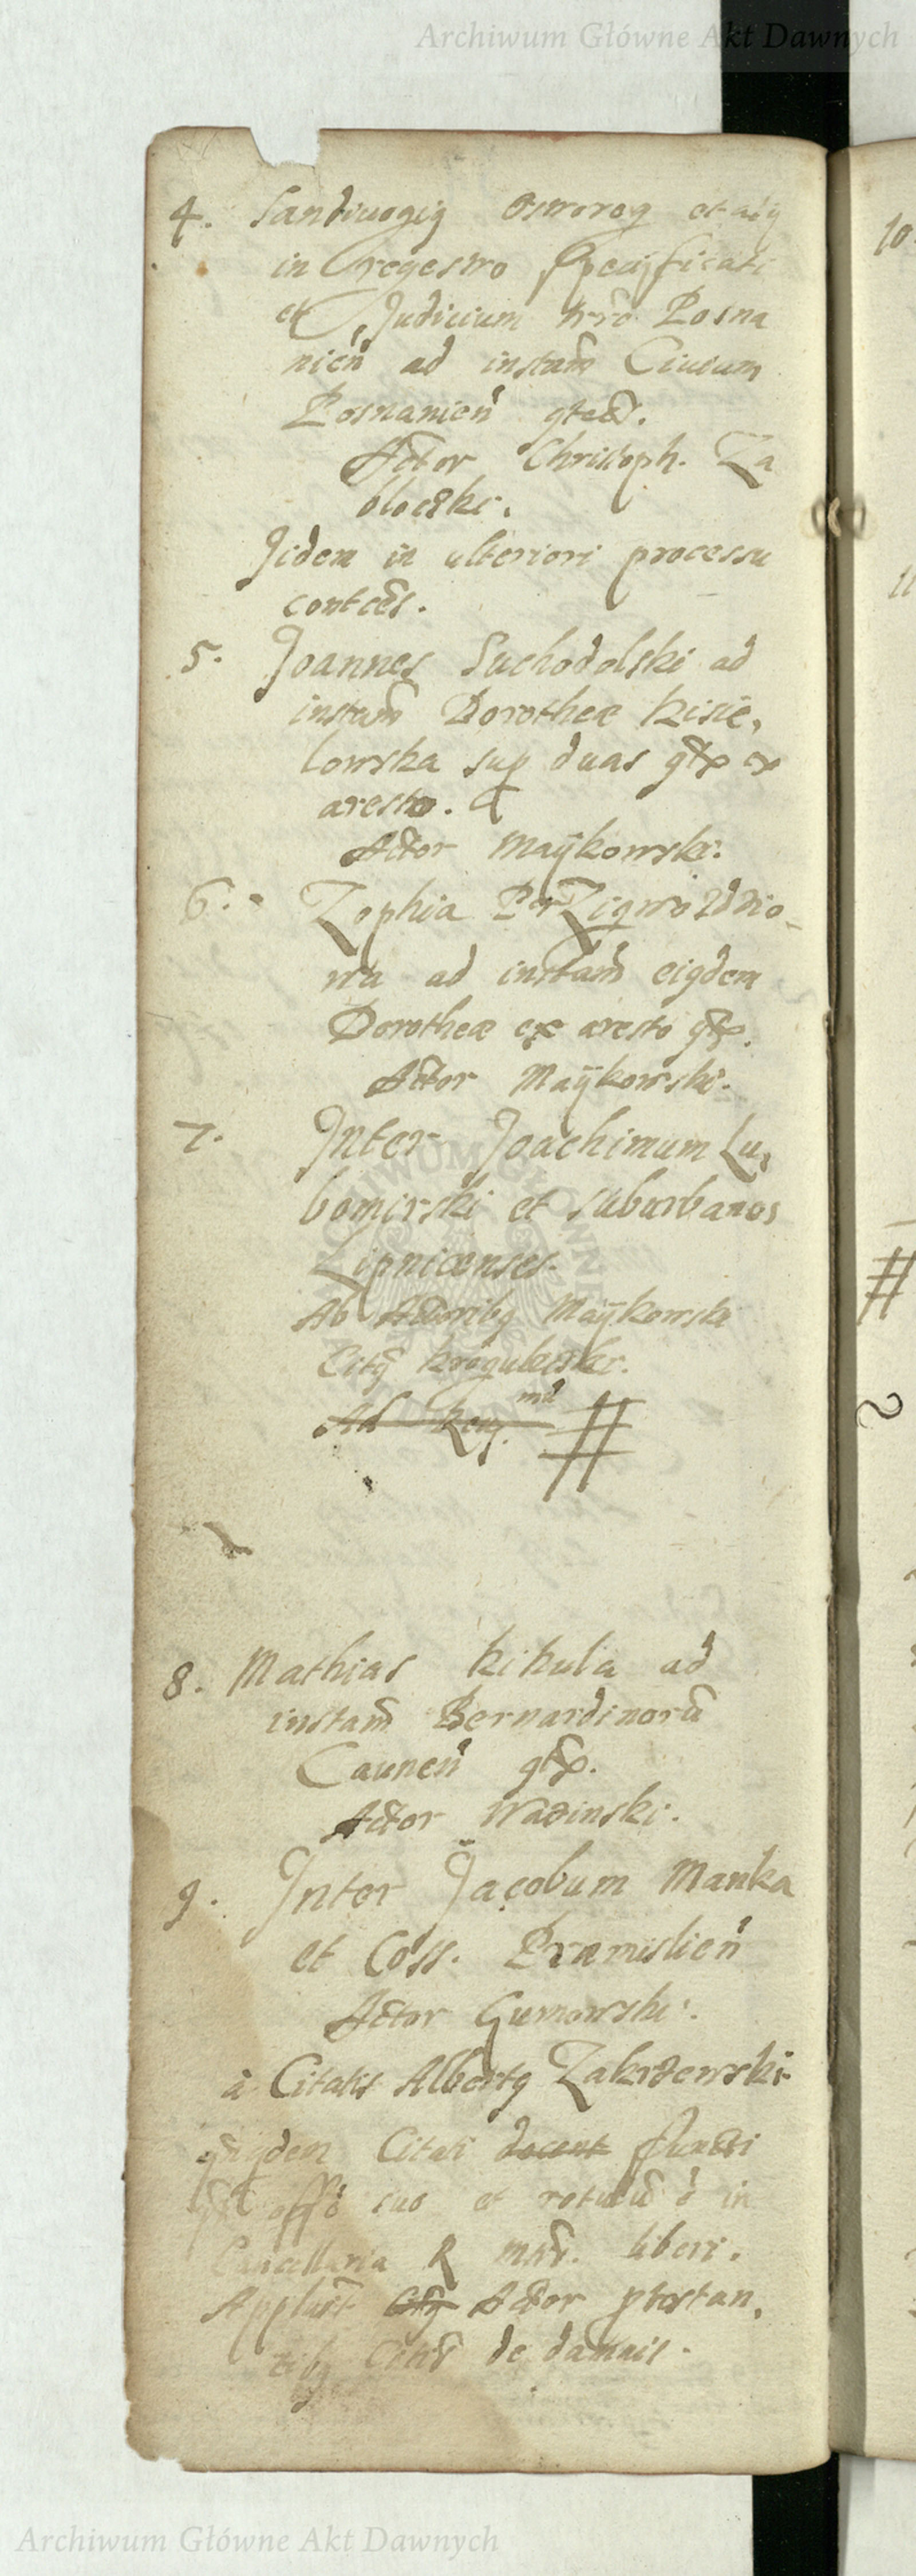 Archiwum Główne Akt Dawnych
4. Sandiuogiq Ostrorog et alij
in regestro specifficati
et Judicium nrō Posna
nień ad instam̃ Ciuium
Posnanień
Actor Christoph. Za
bloczki.
Jidem in ulteriori processu
contces.
5. Joannes Suchodolski ad
instam̃ Dorotheæ Kisie,
lowska sup duas ex
aresto.
Actor Maÿkowski.
6. Zophia
wa ad instam̃ eiqdem
Dorotheæ ex aresto
Actor Maÿkowski.
7. Inter Joachimum Lu,
bomirski et suburbanos
Lipnicenses.
Ab Actoribq Maÿkowski
Citq
Ad Reg. mū #
8. Mathias Kikulia ad
instam̃ Bernardinorū
Caunen̄
Actor Wazinski.
9. Inter Jacobum Manka
et Coss. Præmislień
Actor Gumowski.
à Citatis Albertq Zakrzewski
Citati docent functi
offō suo et in
Cancellaria R liberi.
Citq Actor
de damnis.
10.
11
#
Archiwum Główne Akt Dawnych